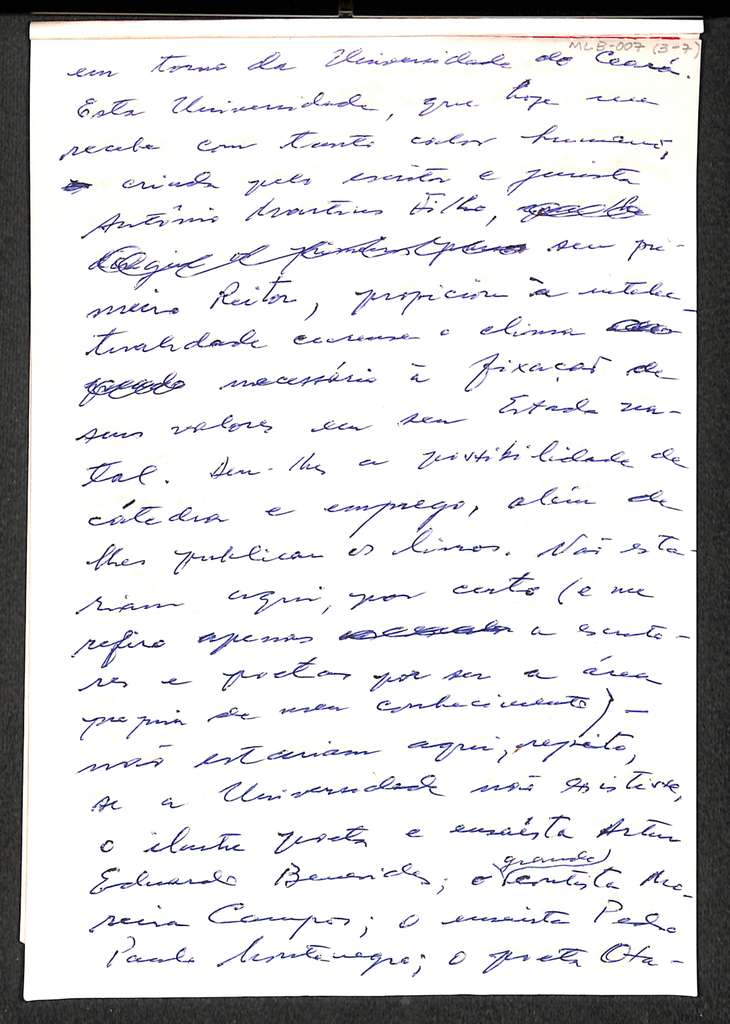 MLB-007 (3-7)
em torno da Universidade do Ceará.
Esta Universidade, que hoje me
recebe com tanto calor humano,
criada pelo escritor e jurista
Antônio Martins Filho,
seu pri-
meiro Reitor, propiciou à intelec-
tualidade cearense o clima
necessário à fixação de
seus valores em seu Estado na-
tal. Deu-lhes a possibilidade de
cátedra e emprego, além de
lhes publicar os livros. Não esta-
riam aqui, por certo (e me
refiro apenas a escrito-
res e poetas por ser a área
propria de meu conhecimento) –
não estariam aqui, repito,
se a Universidade não existisse,
o ilustre poeta e ensaísta Artur
Eduardo Benevides; o grande contista Mo-
reira Campos; o ensaista Pedro
Paulo Montenegro; o poeta Ota-